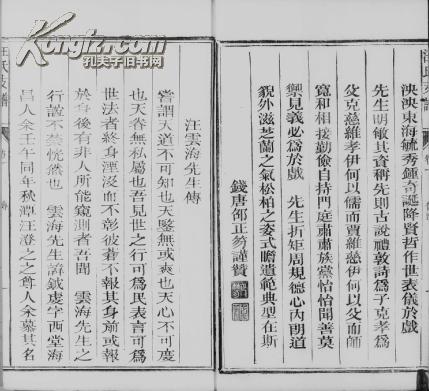 泱泱東海毓秀鍾奇誕降賢哲作世表儀於戲
先生明敏其資稱先則古說禮敦詩爲子克孝爲
父克慈維孝伊何以儒而賈維慈伊何以父而師
寬和相接勤儉自持門庭肅肅族黨怡怡聞善莫
禦見義必爲於戲 先生折矩周規德心內朗道
貌外滋芝蘭之氣松柏之姿式瞻遺範典型在斯
錢唐邵正笏謹贊
汪雲海先生傳
嘗謂大道不可知也天鑒無或爽也天心不可度
也天眷無私屬也吾見世之行可爲民表言可爲
世法者終身湮沒而不彰彼蒼不報其身前或報
於身後有非人所能窺測者吾聞 雲海先生之
行誼不禁恍然也 雲海先生諱鉞虔字西堂海
昌人余壬午同年秋潭汪澄之之尊人余慕其名
汪氏支譜